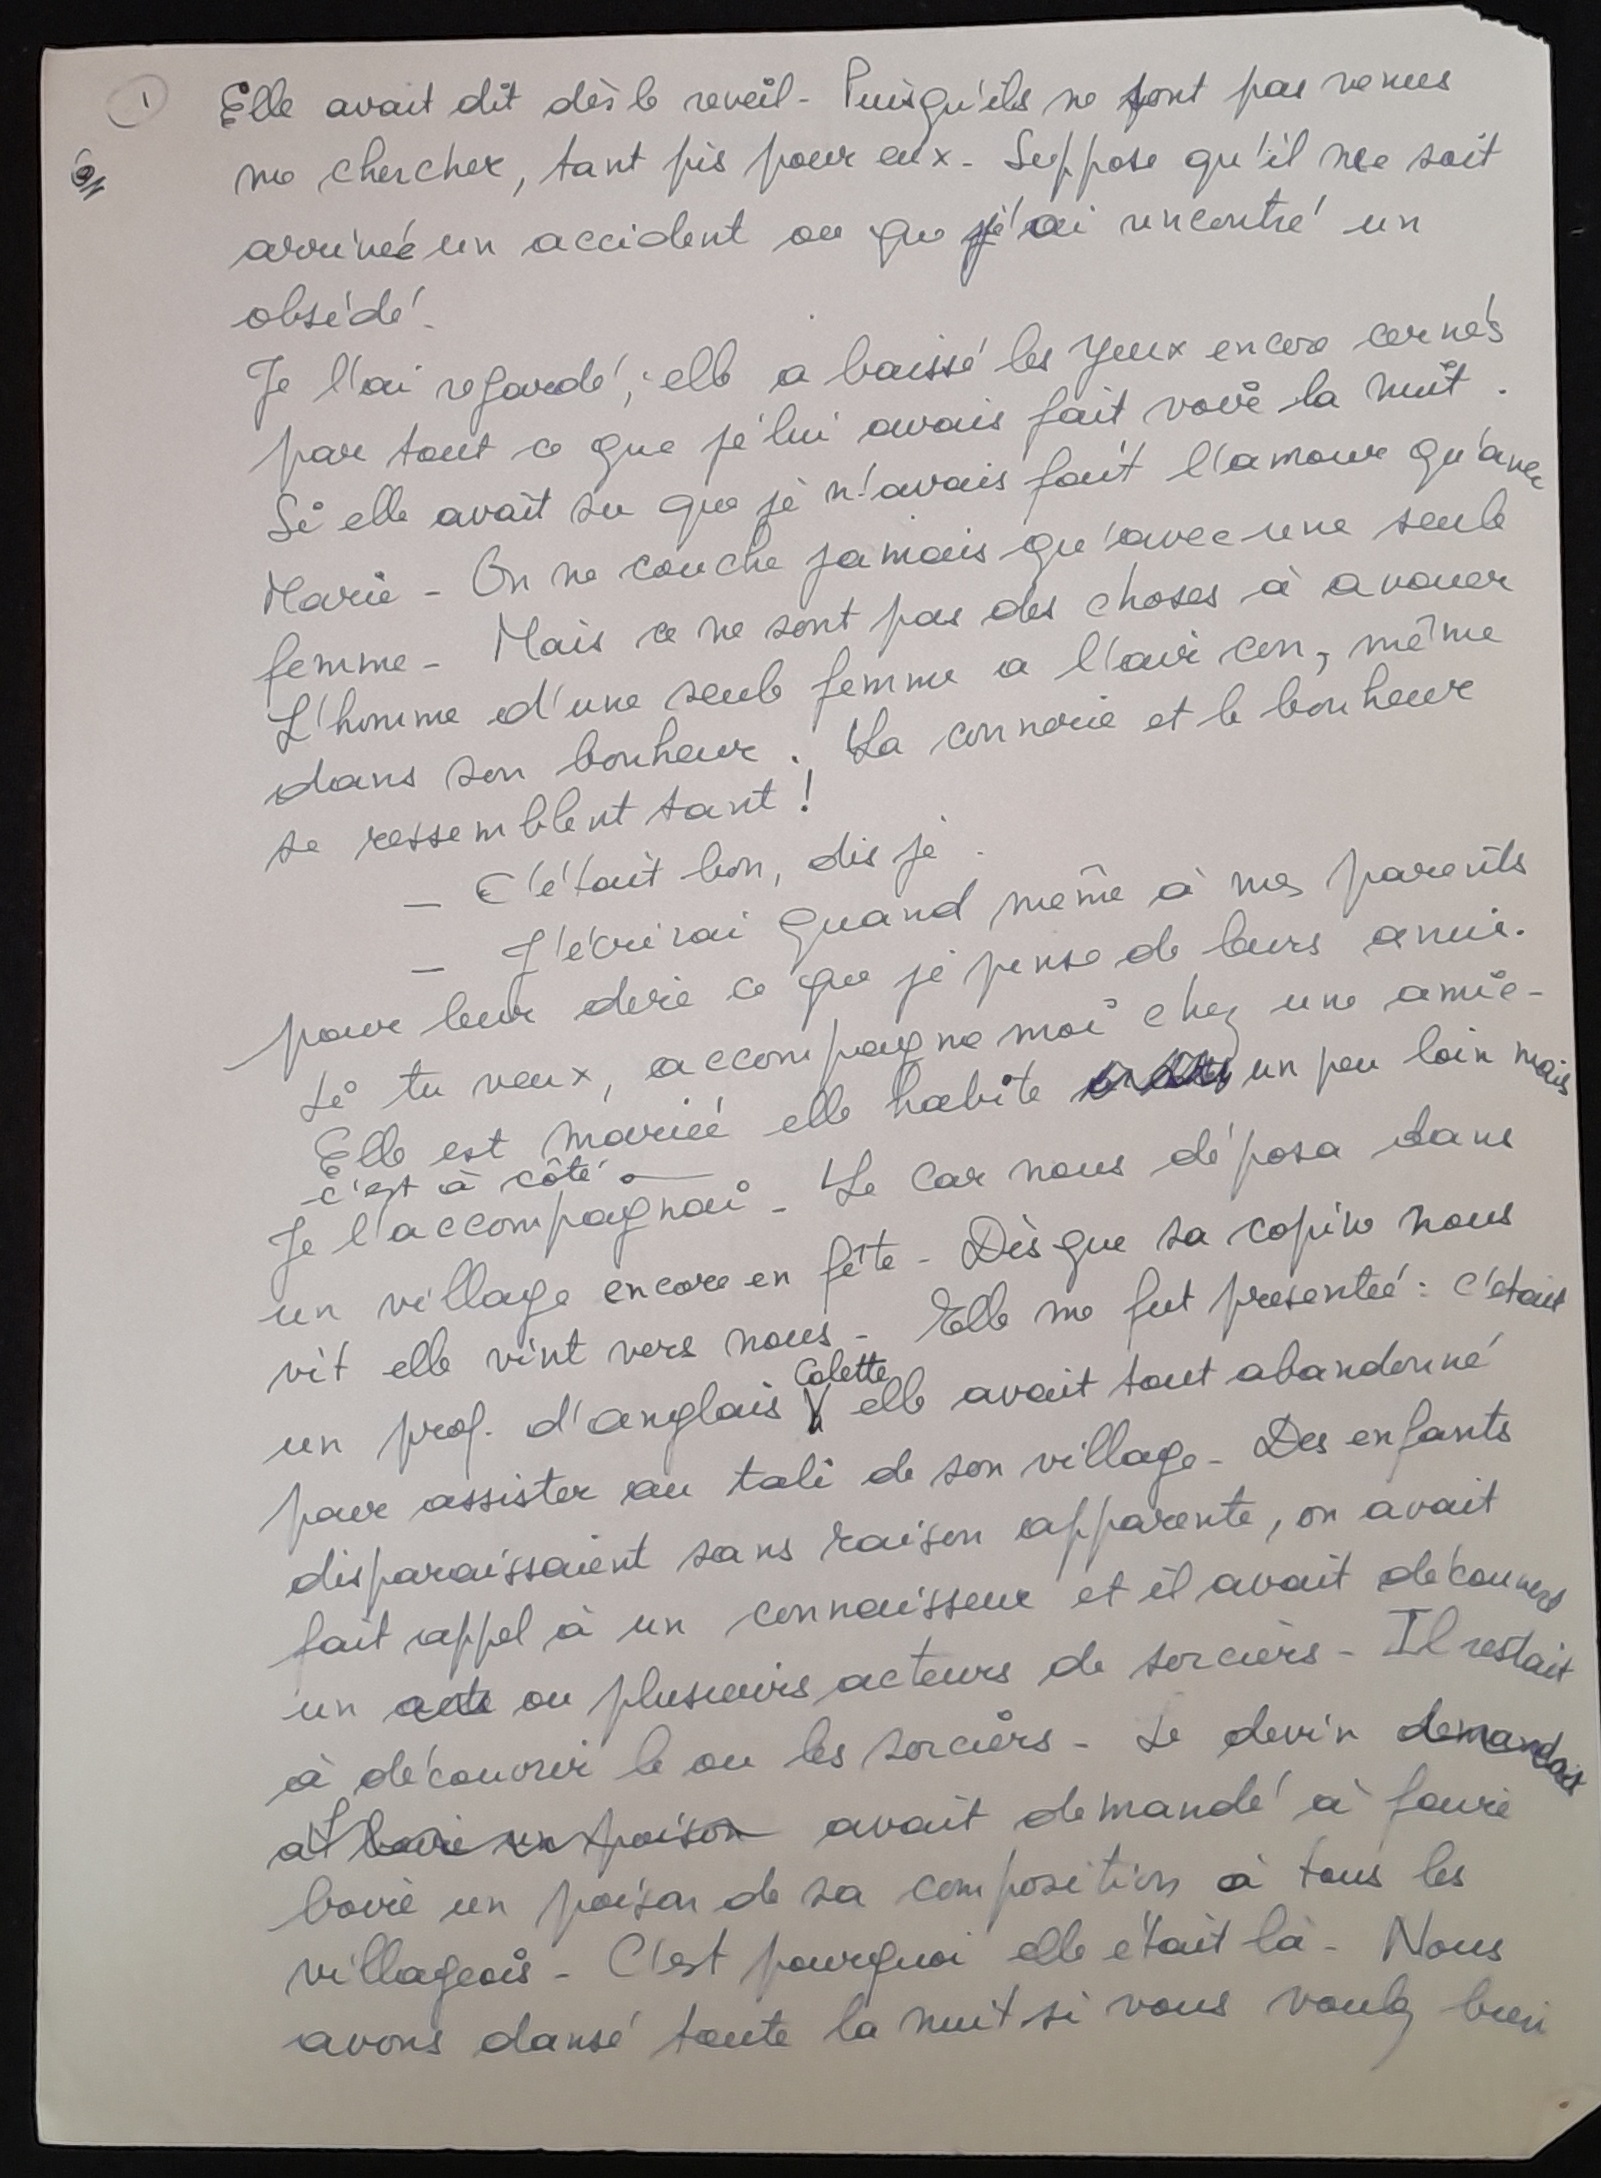 1
Elle avait dit dès le reveil - Puisqu'ils ne sont pas venus
me chercher, tant pis pour eux - Suppose qu'il me soit
arrivée un accident ou que j'ai rencontré un
obsédé.
Je l'ai regardé, elle a baissé les yeux encore cernés
par tout ce que je lui avais fait voir la nuit.
Si elle avait su que je n'avais fait l'amour qu'avec
Marie - On ne couche jamais qu'avec une seule
femme - Mais ce ne sont pas des choses à avouer
L'homme d'une seule femme a l'air con, même
dans son bonheur. La connerie et le bonheur
se ressemblent tant !
— C'était bon, dis je.
— J'écrirai quand même à mes parents
pour leur dire ce que je pense de leurs amis.
Si tu veux, accompagne moi chez une amie -
Elle est mariée elle habite un peu loin mais
c'est à côté.
Je l'accompagnai - Le car nous déposa dans
un village encore en fête - Dès que sa copine nous
vit elle vint vers nous - Elle me fut presentée : c'était
un prof. d'anglais Colette elle avait tout abandonné
pour assister au tali de son village - Des enfants
disparaissaient sans raison apparente, on avait
fait appel à un connaisseur et il avait découvert
un acte ou plusieurs acteurs de sorciers - Il restait
à découvrir le ou les sorciers - Le devin demandait
at boire un poison avait demandé à faire
boire un poison de sa composition à tous les
villageois - C'est pourquoi elle était là - Nous
avons dansé toute la nuit si vous voulez bien